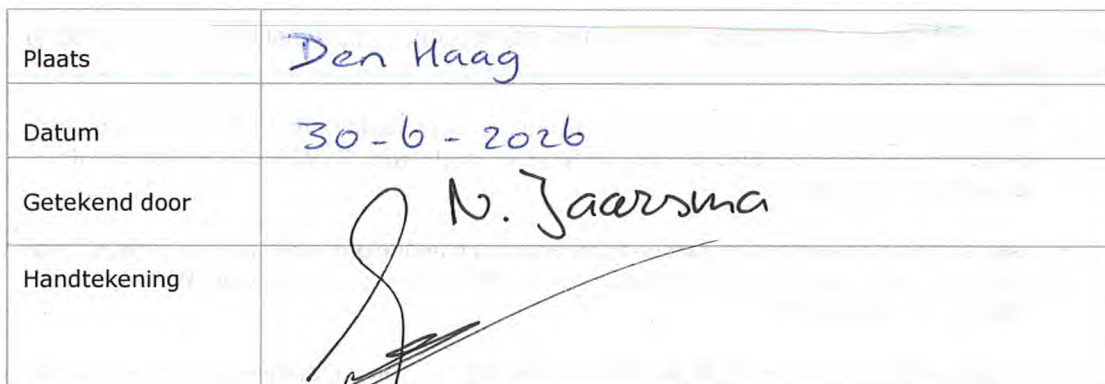 Plaats Den Haag
Datum 30-6-2026
Getekend door N. Jaarsma
Handtekening